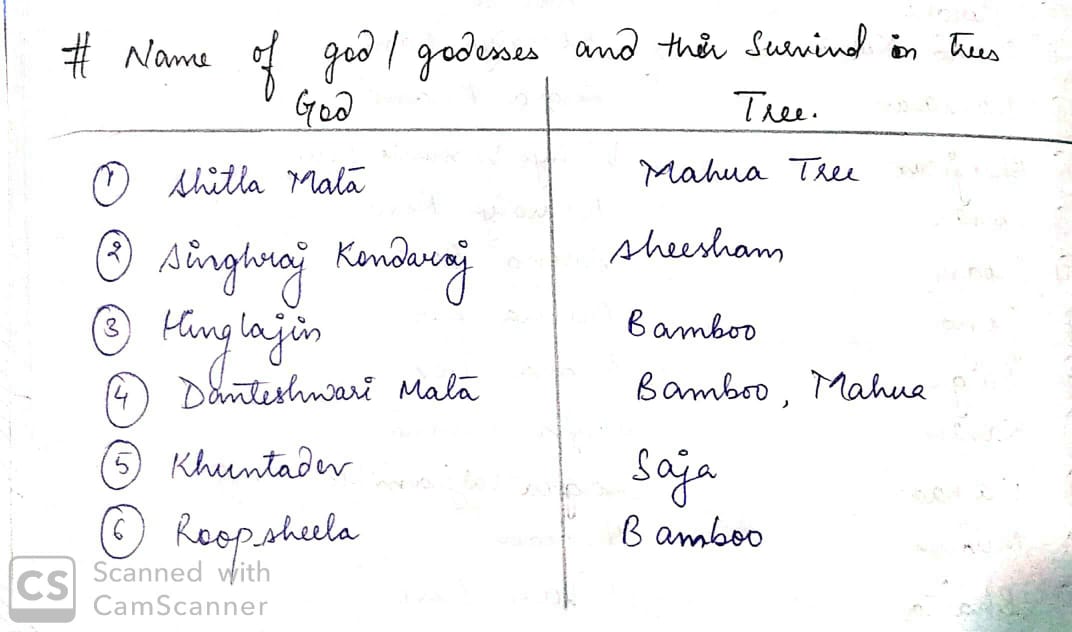 # Name of god / godesses and their Survind in trees
God Tree.
① Shitla Matā Mahua Tree
② Singhraj Kondaraj Sheesham
③ Hinglajin Bamboo
④ Danteshwari Matā Bamboo, Mahua
⑤ Khuntadev Saja
⑥ Roopsheela Bamboo
CS Scanned with
CamScanner